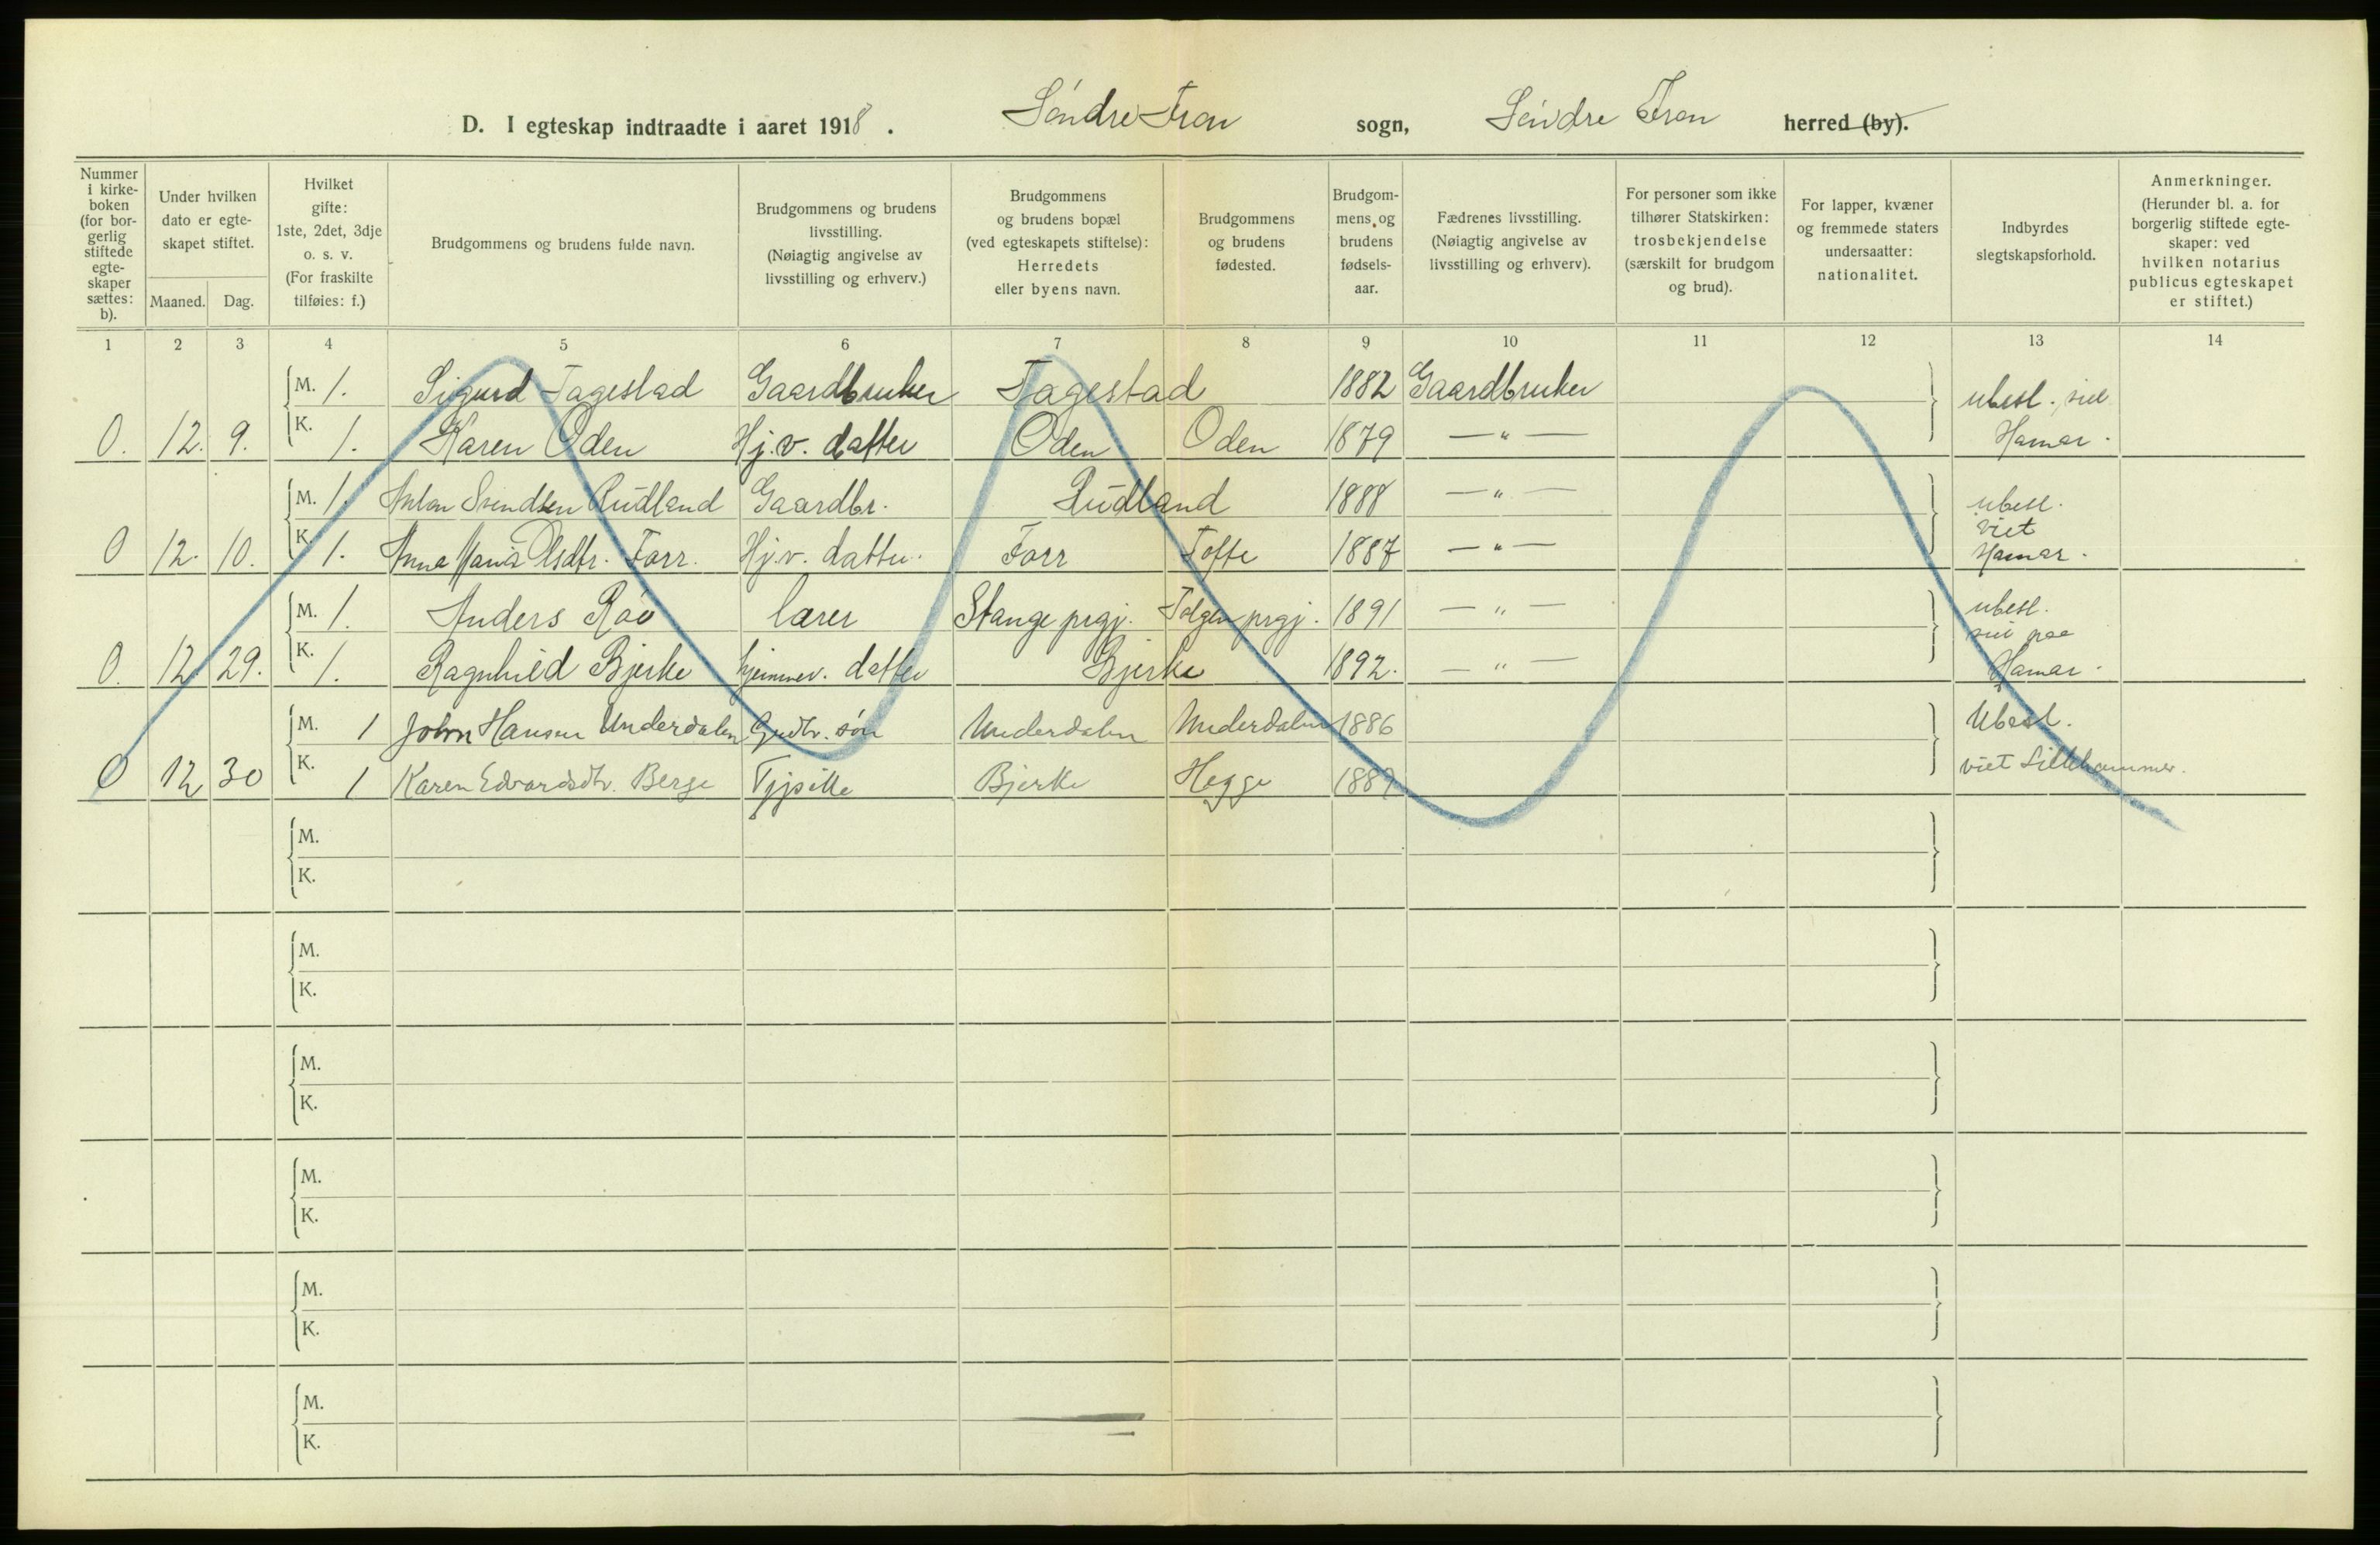 D. I egteskap indtraadte i aaret 1918. Söndre Fron sogn, Söndre Fron herred (by).
Nummer i kirkeboken (for borgerlig stiftede egteskaper sættes: b).
Under hvilken dato er egteskapet stiftet.
Maaned. Dag.
Hvilket gifte: 1ste, 2det, 3dje o. s. v. (For fraskilte tilføies: f.)
Brudgommens og brudens fulde navn.
Brudgommens og brudens livsstilling. (Nøiagtig angivelse av livsstilling og erhverv.)
Brudgommens og brudens bopæl (ved egteskapets stiftelse): Herredets eller byens navn.
Brudgommens og brudens fødested.
Brudgommens og brudens fødselsaar.
Fædrenes livsstilling. (Nøiagtig angivelse av livsstilling og erhverv).
For personer som ikke tilhører Statskirken: trosbekjendelse (særskilt for brudgom og brud).
For lapper, kvæner og fremmede staters undersaatter: nationalitet.
Indbyrdes slegtskapsforhold.
Anmerkninger. (Herunder bl. a. for borgerlig stiftede egteskaper: ved hvilken notarius publicus egteskapet er stiftet.)
1 2 3 4 5 6 7 8 9 10 11 12 13 14
M. 1. Sigurd Fagestad Gaardbruker Fagestad 1882 Gaardbruker ubesl.
0. 12. 9. K. 1. Karen Oden Hj.v. datter Oden Oden 1879 — " — Hamar.
M. 1. Anton Svendsen Rudland Gaardbr. Rudland 1888 — " — ubesl.
viet
0 12. 10. K. 1. Anna Maria Olsdtr. Forr. Hj.v. datter. Forr Tofte 1887 — " — Hamar.
M. 1. Anders Röö lærer Stange prgj. Tolgen prgj. 1891 — " — ubesl.
0. 12 29. K. 1. Ragnhild Bjerke hjemmev. datter Bjerke 1892. — " — Hamar.
M. 1 John Hansen Underdalen Grdbr. sön Underdalen Underdalen 1886 Ubesl.
0 12 30 K. 1 Karen Edvardsdtr. Berge Bjerke Hegge 1887 viet Lillehammer.
M.
K.
M.
K.
M.
K.
M.
K.
M.
K.
M.
K.